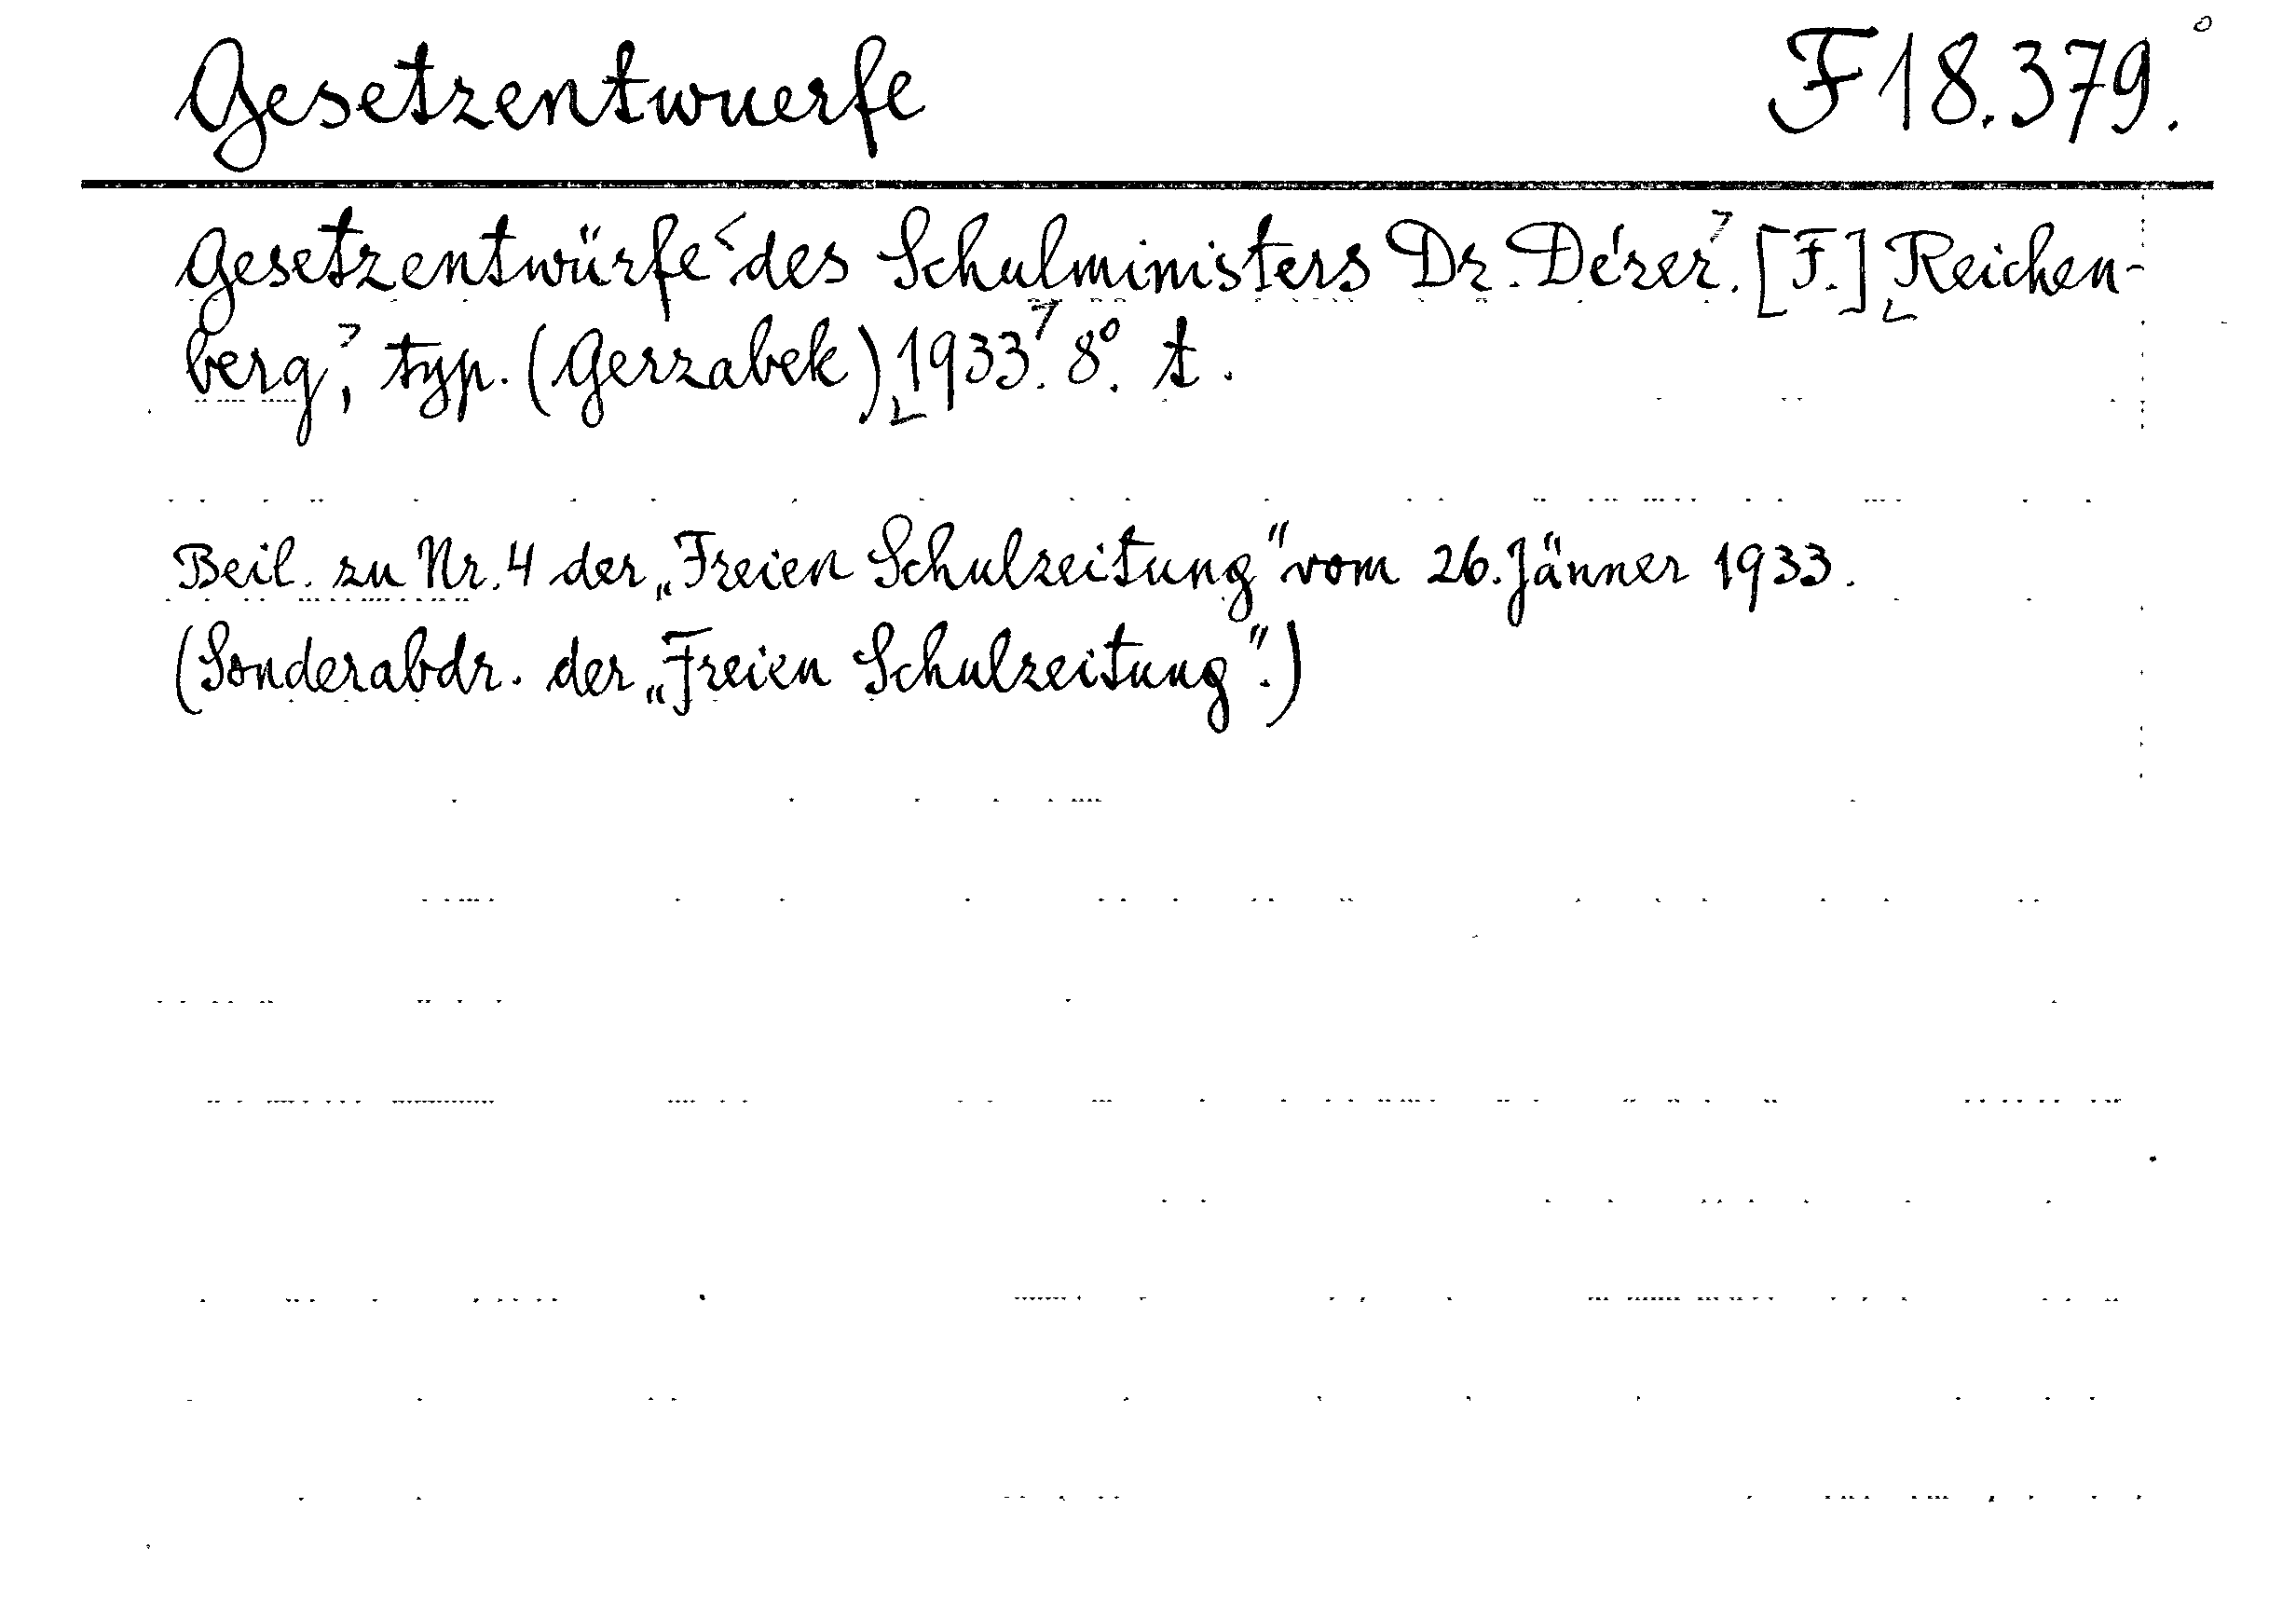 Gesetzentwuerfe F 18.379.
Gesetzentwürfe des Schulministers Dr. Dérer. [F.] Reichen-
berg, typ. (Gerzabek) 1933. 8°. t.
Beil. zu Nr. 4 der „Freien Schulzeitung“ vom 26. Jänner 1933.
(Sonderabdr. der „Freien Schulzeitung“.)